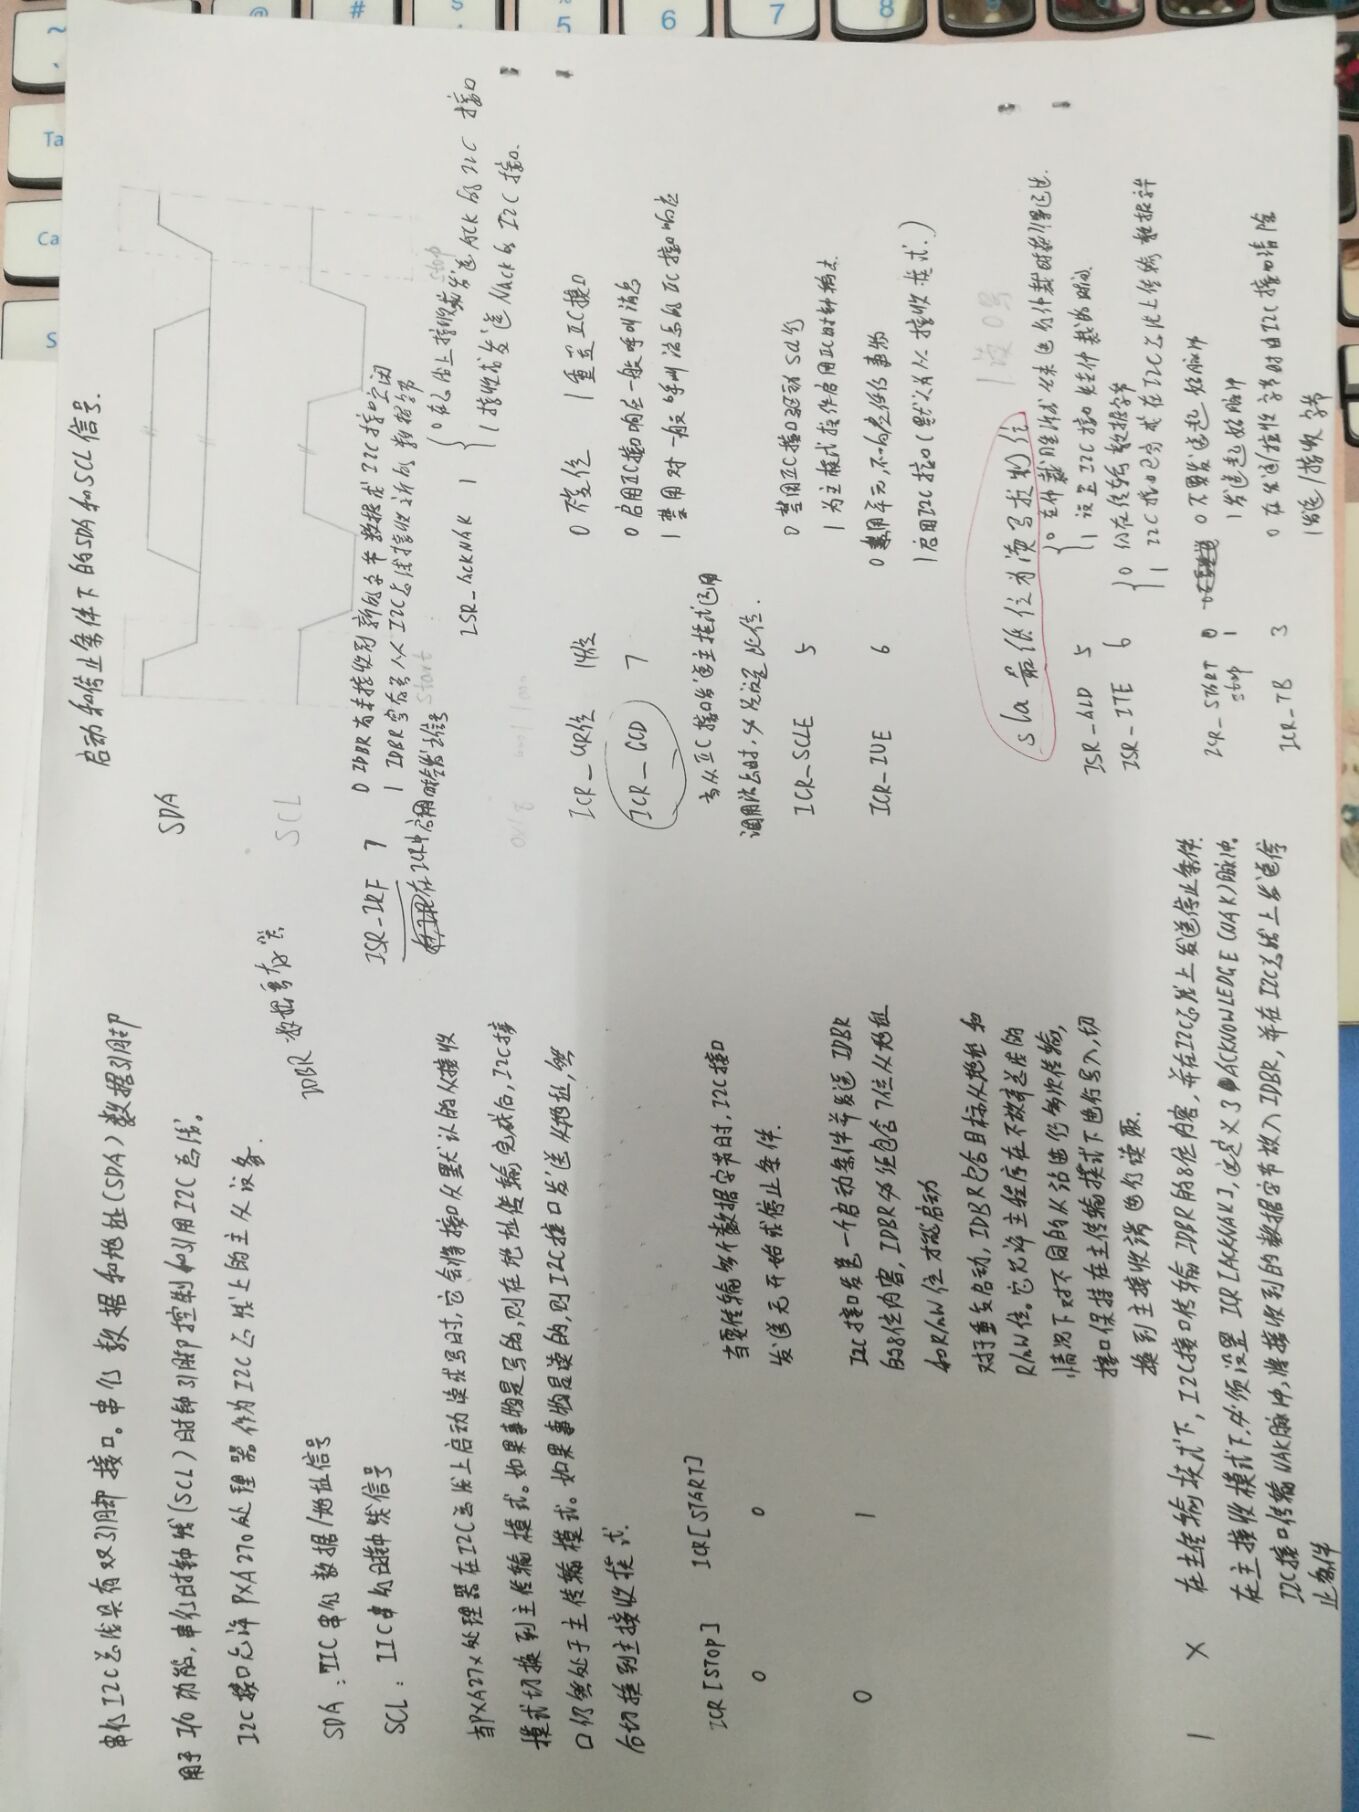 串行I2C总线具有双引脚接口。串行数据和地址(SDA)数据引脚
用于I/O功能,串行时钟线(SCL)时钟引脚控制和引用I2C总线。
I2C接口允许PXA270处理器作为I2C总线上的主从设备.
SDA:IIC串行数据/地址信号
SCL:IIC串行时钟线信号
IDBR 数据寄存器
当PXA27x处理器在I2C总线上启动读或写时,它会将接口从默认的从接收
模式切换到主传输模式。如果事物是写的,则在地址传输完成后,I2C接
口仍然处于主传输模式。如果事物是读的,则I2C接口发送从地址,然
后切换到主接收模式.
ICR[STOP] ICR[START]
0 0 当要传输多个数据字节时,I2C接口
发送无开始或停止条件.
0 1 I2C接口发送一个启动条件并发送IDBR
的8位内容,IDBR必须包含7位从地址
和R/nW位才能启动
对于重复启动,IDBR包含目标从地址和
R/nW位。它允许主程序在不放弃总线的
情况下对不同的从站进行多次传输,
接口保持在主传输模式下进行写入,切
换到主接收端进行读取.
1 X 在主传输模式下,I2C接口传输IDBR的8位内容,并在I2C总线上发送停止条件.
在主接收模式下,必须设置ICR[ACKNAK],这定义了 ACKNOWLEDGE (NAK)脉冲。
I2C接口传输NAK脉冲,将接收到的数据字节放入IDBR,并在I2C总线上发送停
止条件
启动和停止条件下的SDA和SCL信号.
SDA
SCL
start
stop
ISR_IRF 7 0 IDBR尚未接收到新的字节数据或I2C接口空闲
1 IDBR寄存器从I2C总线接收新的数据字节
在ICR中启用时触发信号
ISR_ACKNAK 1 0 在总线上接收或发送ACK的I2C接口
1 接收或发送Nack的I2C接口.
ICR_UR位 14位 0 不复位 1 重置I2C接口
ICR_GCD 7 0 启用I2C接口响应一般呼叫消息
1 禁用对一般呼叫消息的I2C接口响应
当从I2C接口发送主模式通用
调用消息时,必须设置此位.
ICR_SCLE 5 0 禁用I2C接口驱动SCL行
1 为主模式操作启用I2C时钟输出
ICR_IUE 6 0 禁用单元,不响应任何事物
1 启用I2C接口(默认为从接收模式.)
sla最低位为读写控制位
1读0写
ISR_ALD 5 0 在仲裁胜利或从未进行仲裁时获得通过.
1 设置I2C接口失去仲裁的时间
ISR_ITE 6 0 仍在传输数据字节
1 I2C接口已完成在I2C总线上传输数据字节
ICR_START 0 0 不要发送起始脉冲
stop 1 1 发送起始脉冲
ICR_TB 3 0 在发送/接收字节时由I2C接口清除
1 发送/接收字节